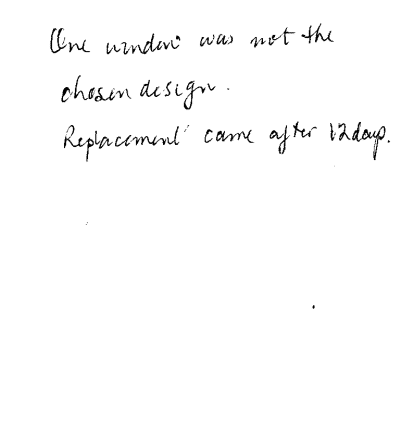 One window was not the
chosen design.
Replacement came after 12 days.